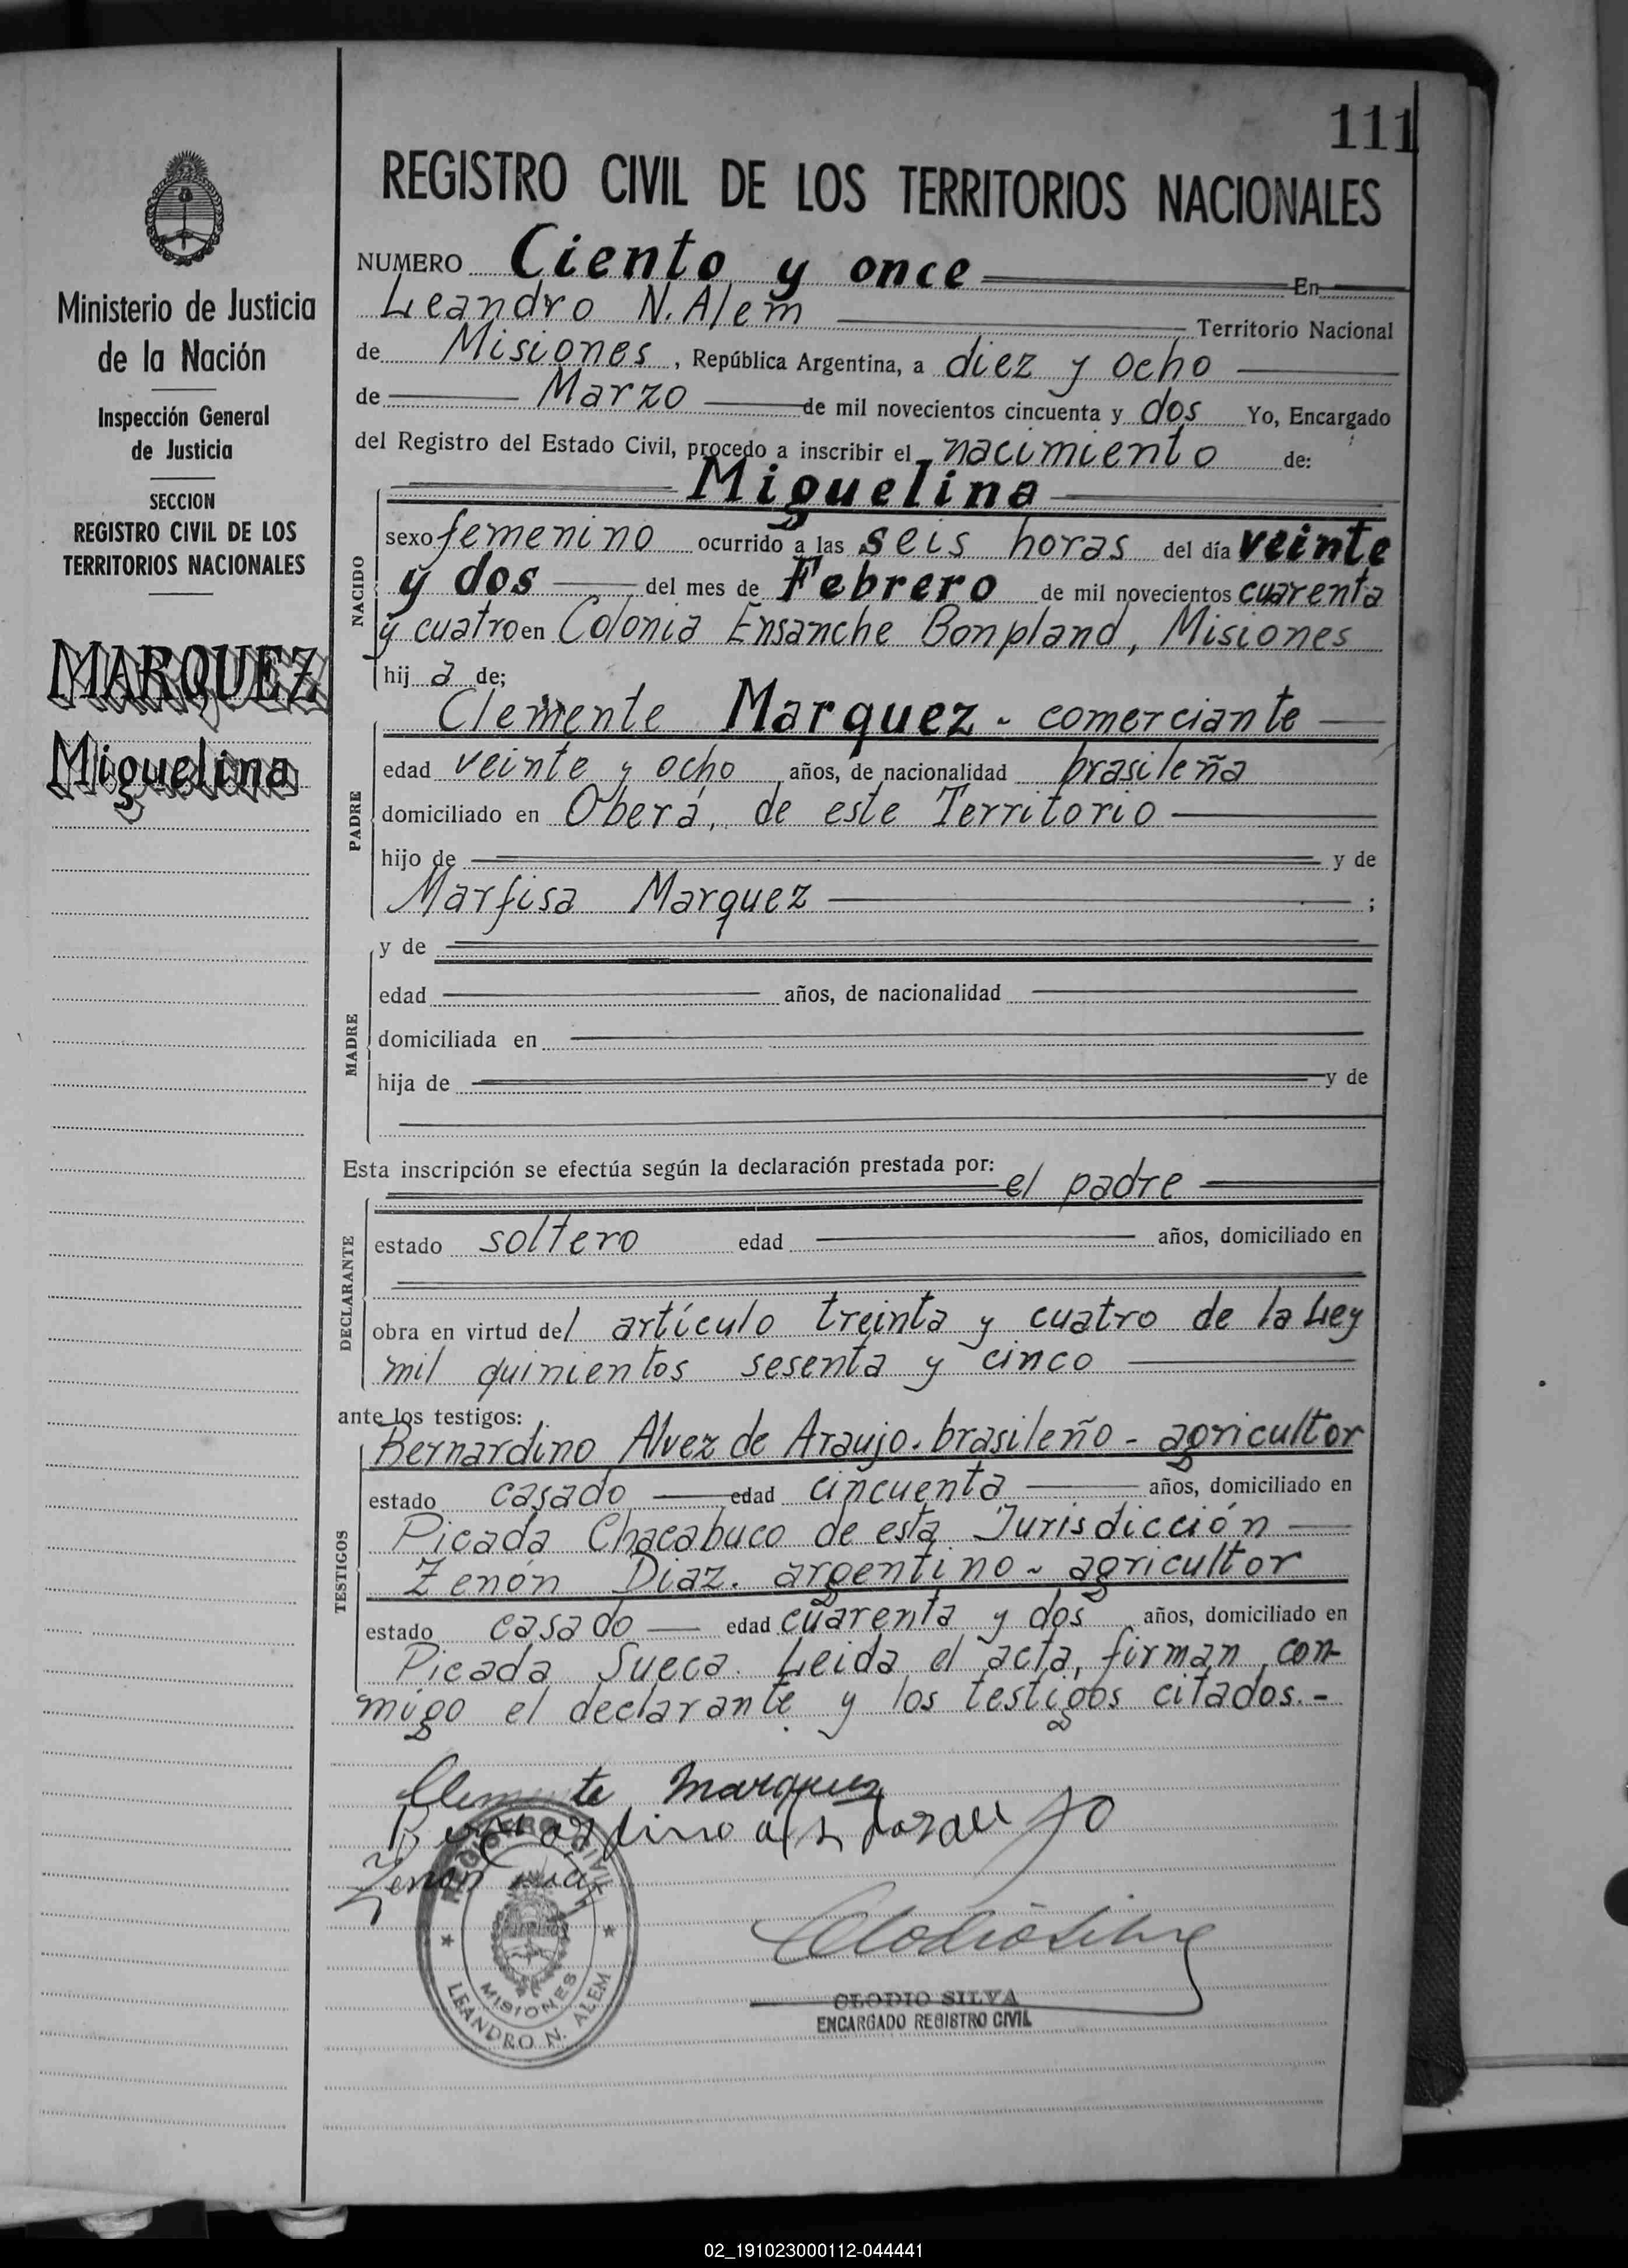 111
REGISTRO CIVIL DE LOS TERRITORIOS NACIONALES
Ministerio de Justicia
de la Nación
Inspección General
de Justicia
SECCION
REGISTRO CIVIL DE LOS
TERRITORIOS NACIONALES
MARQUEZ
Miguelina
NUMERO Ciento y once En
Leandro N. Alem Territorio Nacional
de Misiones, República Argentina, a diez y ocho
de Marzo de mil novecientos cincuenta y dos Yo, Encargado
del Registro del Estado Civil, procedo a inscribir el nacimiento de:
NACIDO
Miguelina
sexo femenino ocurrido a las seis horas del día veinte
y dos del mes de Febrero de mil novecientos cuarenta
y cuatro en Colonia Ensanche Bonpland, Misiones
hija de;
PADRE
Clemente Marquez - comerciante
edad veinte y ocho años, de nacionalidad brasileña
domiciliado en Oberá, de este Territorio
hijo de y de
Marfisa Marquez ;
MADRE
y de
edad años, de nacionalidad
domiciliada en
hija de y de
Esta inscripción se efectúa según la declaración prestada por:
el padre
DECLARANTE
estado soltero edad años, domiciliado en
obra en virtud del artículo treinta y cuatro de la Ley
mil quinientos sesenta y cinco
ante los testigos:
TESTIGOS
Bernardino Alvez de Araujo. brasileño - agricultor
estado casado edad cincuenta años, domiciliado en
Picada Chacabuco de esta Jurisdicción
Zenón Diaz. argentino - agricultor
estado casado edad cuarenta y dos años, domiciliado en
Picada Sueca. Leida el acta, firman con-
migo el declarante y los testigos citados.-
Clemente Marquez
Zenon Diaz
REGISTRO CIVIL
MISIONES
LEANDRO N. ALEM
Clodio Silva
CLODIO SILVA
ENCARGADO REGISTRO CIVIL
02_191023000112-044441